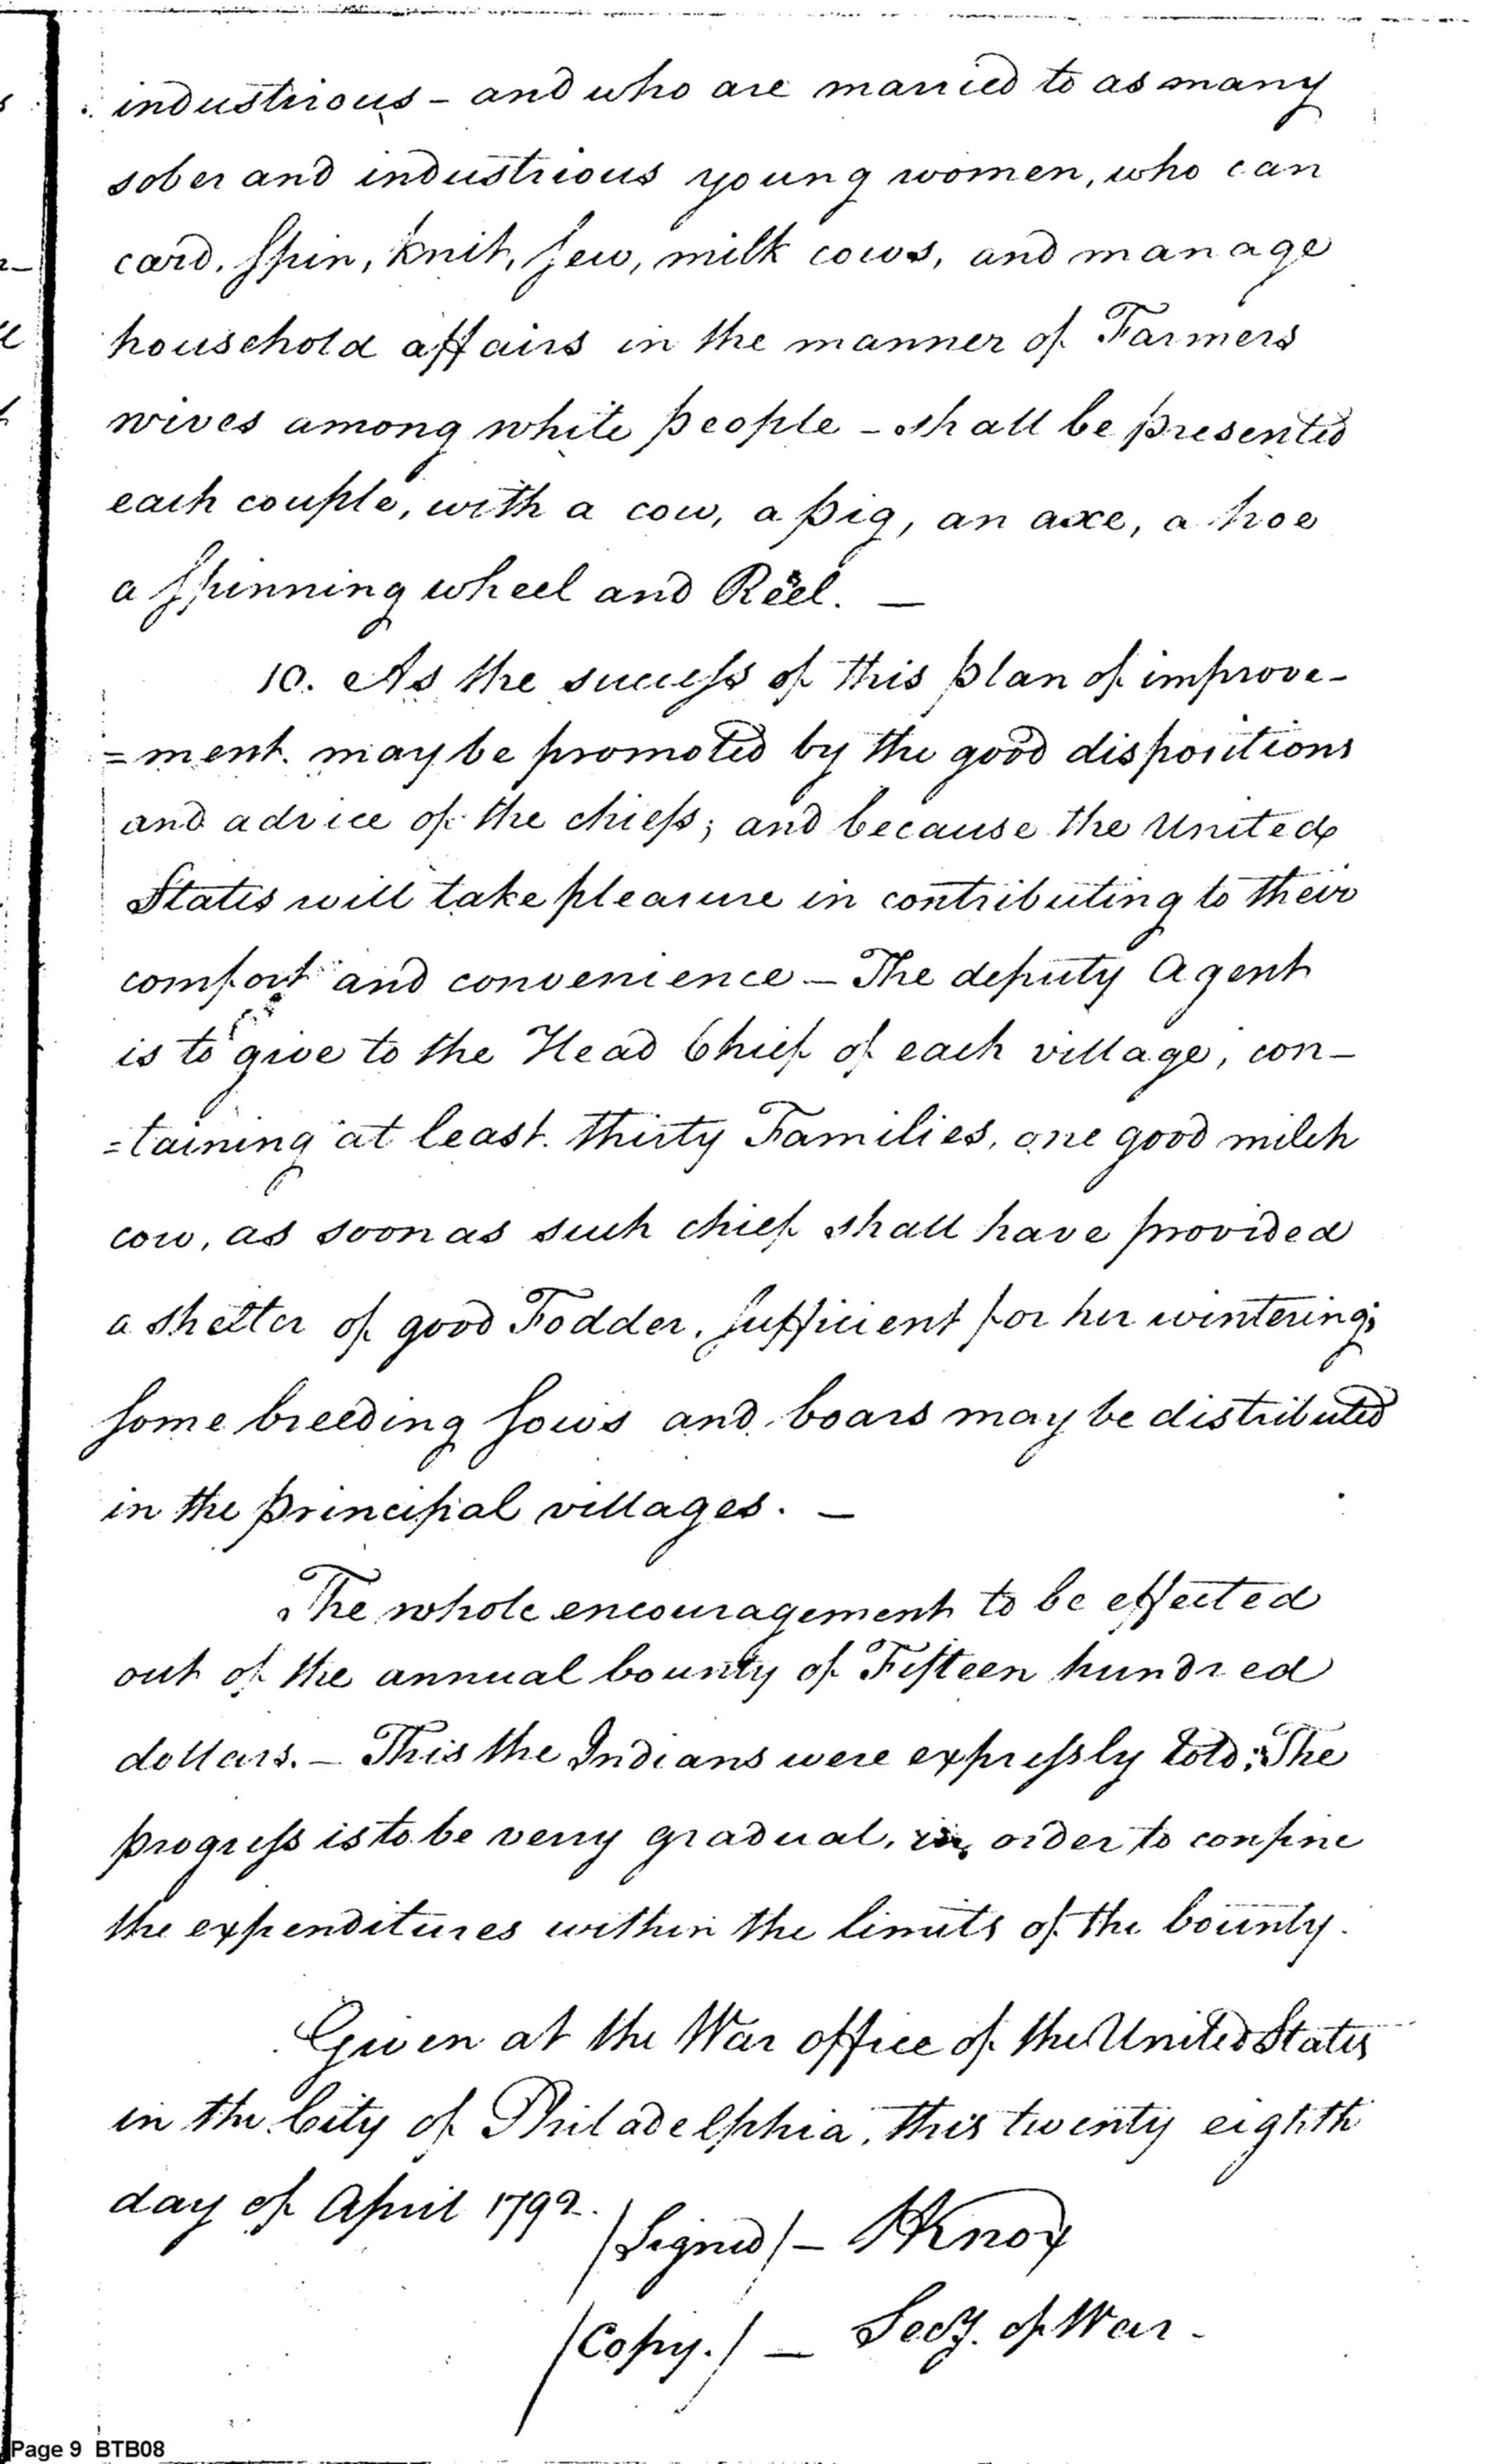 industrious - and who are married to as many
sober and industrious young women, who can
card, spin, knit, sew, milk cows, and manage
household affairs in the manner of Farmers
wives among white people - shall be presented
each couple, with a cow, a pig, an axe, a hoe
a spinning wheel and Reel. —
10. As the success of this plan of improve-
=ment. may be promoted by the good dispositions
and advice of the chiefs; and because the United
States will take pleasure in contributing to their
comfort and convenience - The deputy Agent
is to give to the Head Chief of each village, con-
=taining at least thirty Families, one good milch
cow, as soon as such chief shall have provided
a shelter of good Fodder, sufficient for her wintering;
some breeding sows and boars may be distributed
in the principal villages. —
The whole encouragement to be effected
out of the annual bounty of Fifteen hundred
dollars. - This the Indians were expressly told: The
progress is to be verry gradual, in order to confine
the expenditures within the limits of the bounty.
Given at the War office of the United States
in the City of Philadelphia, this twenty eighth
day of April 1792.
/Signed/ - HKnox
/Copy./ - Secy. of War -
Page 9 BTB08